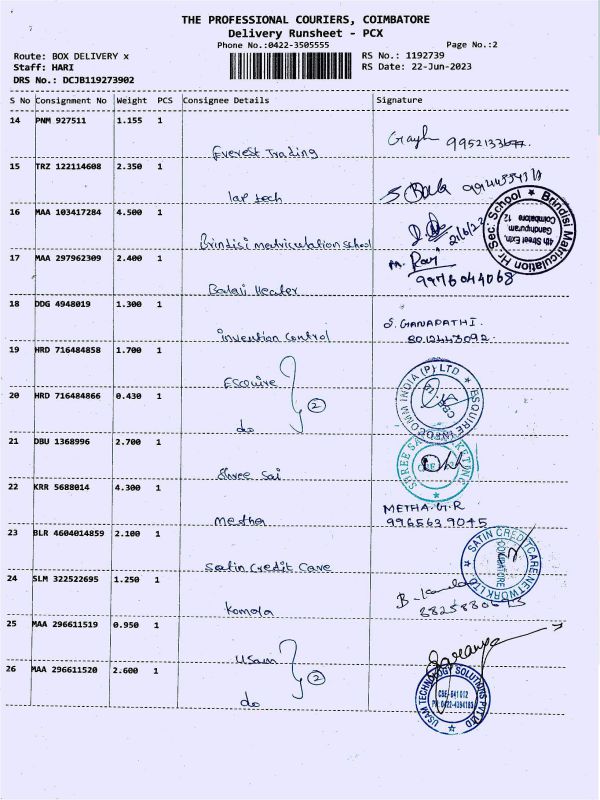 THE PROFESSIONAL COURIERS, COIMBATORE
Delivery Runsheet - PCX
Phone No.:0422-3505555
Page No.:2
Route: BOX DELIVERY x
RS No.: 1192739
Staff: HARI
RS Date: 22-Jun-2023
DRS No.: DCJB119273902
S No Consignment No Weight PCS Consignee Details Signature
14 PNM 927511 1.155 1
Everest Trading
15 TRZ 122114608 2.350 1
lap tech
16 MAA 103417284 4.500 1
Brindisi matriculation school
Brindisi Matriculation Hr. Sec. School
4th Street Extn,
Gandhipuram
Coimbatore
12
17 MAA 297962309 2.400 1
Ravi
9976044068
Balaji Heater
18 DDG 4948019 1.300 1
S. GANAPATHI.
8012443092
invention control
19 HRD 716484858 1.700 1
Esquire
20 HRD 716484866 0.430 1
2
do
21 DBU 1368996 2.700 1
Shree Sai
22 KRR 5688014 4.300 1
METHA.G.R
9965639045
metha
23 BLR 4604014859 2.100 1
Satin Credit Care
SATIN CREDITCARE NETWORK LTD
COIMBATORE
24 SLM 322522695 1.250 1
Komala
25 MAA 296611519 0.950 1
Usam
26 MAA 296611520 2.600 1
2
do
USAM TECHNOLOGY SOLUTIONS PVT LTD
CBE-641 012